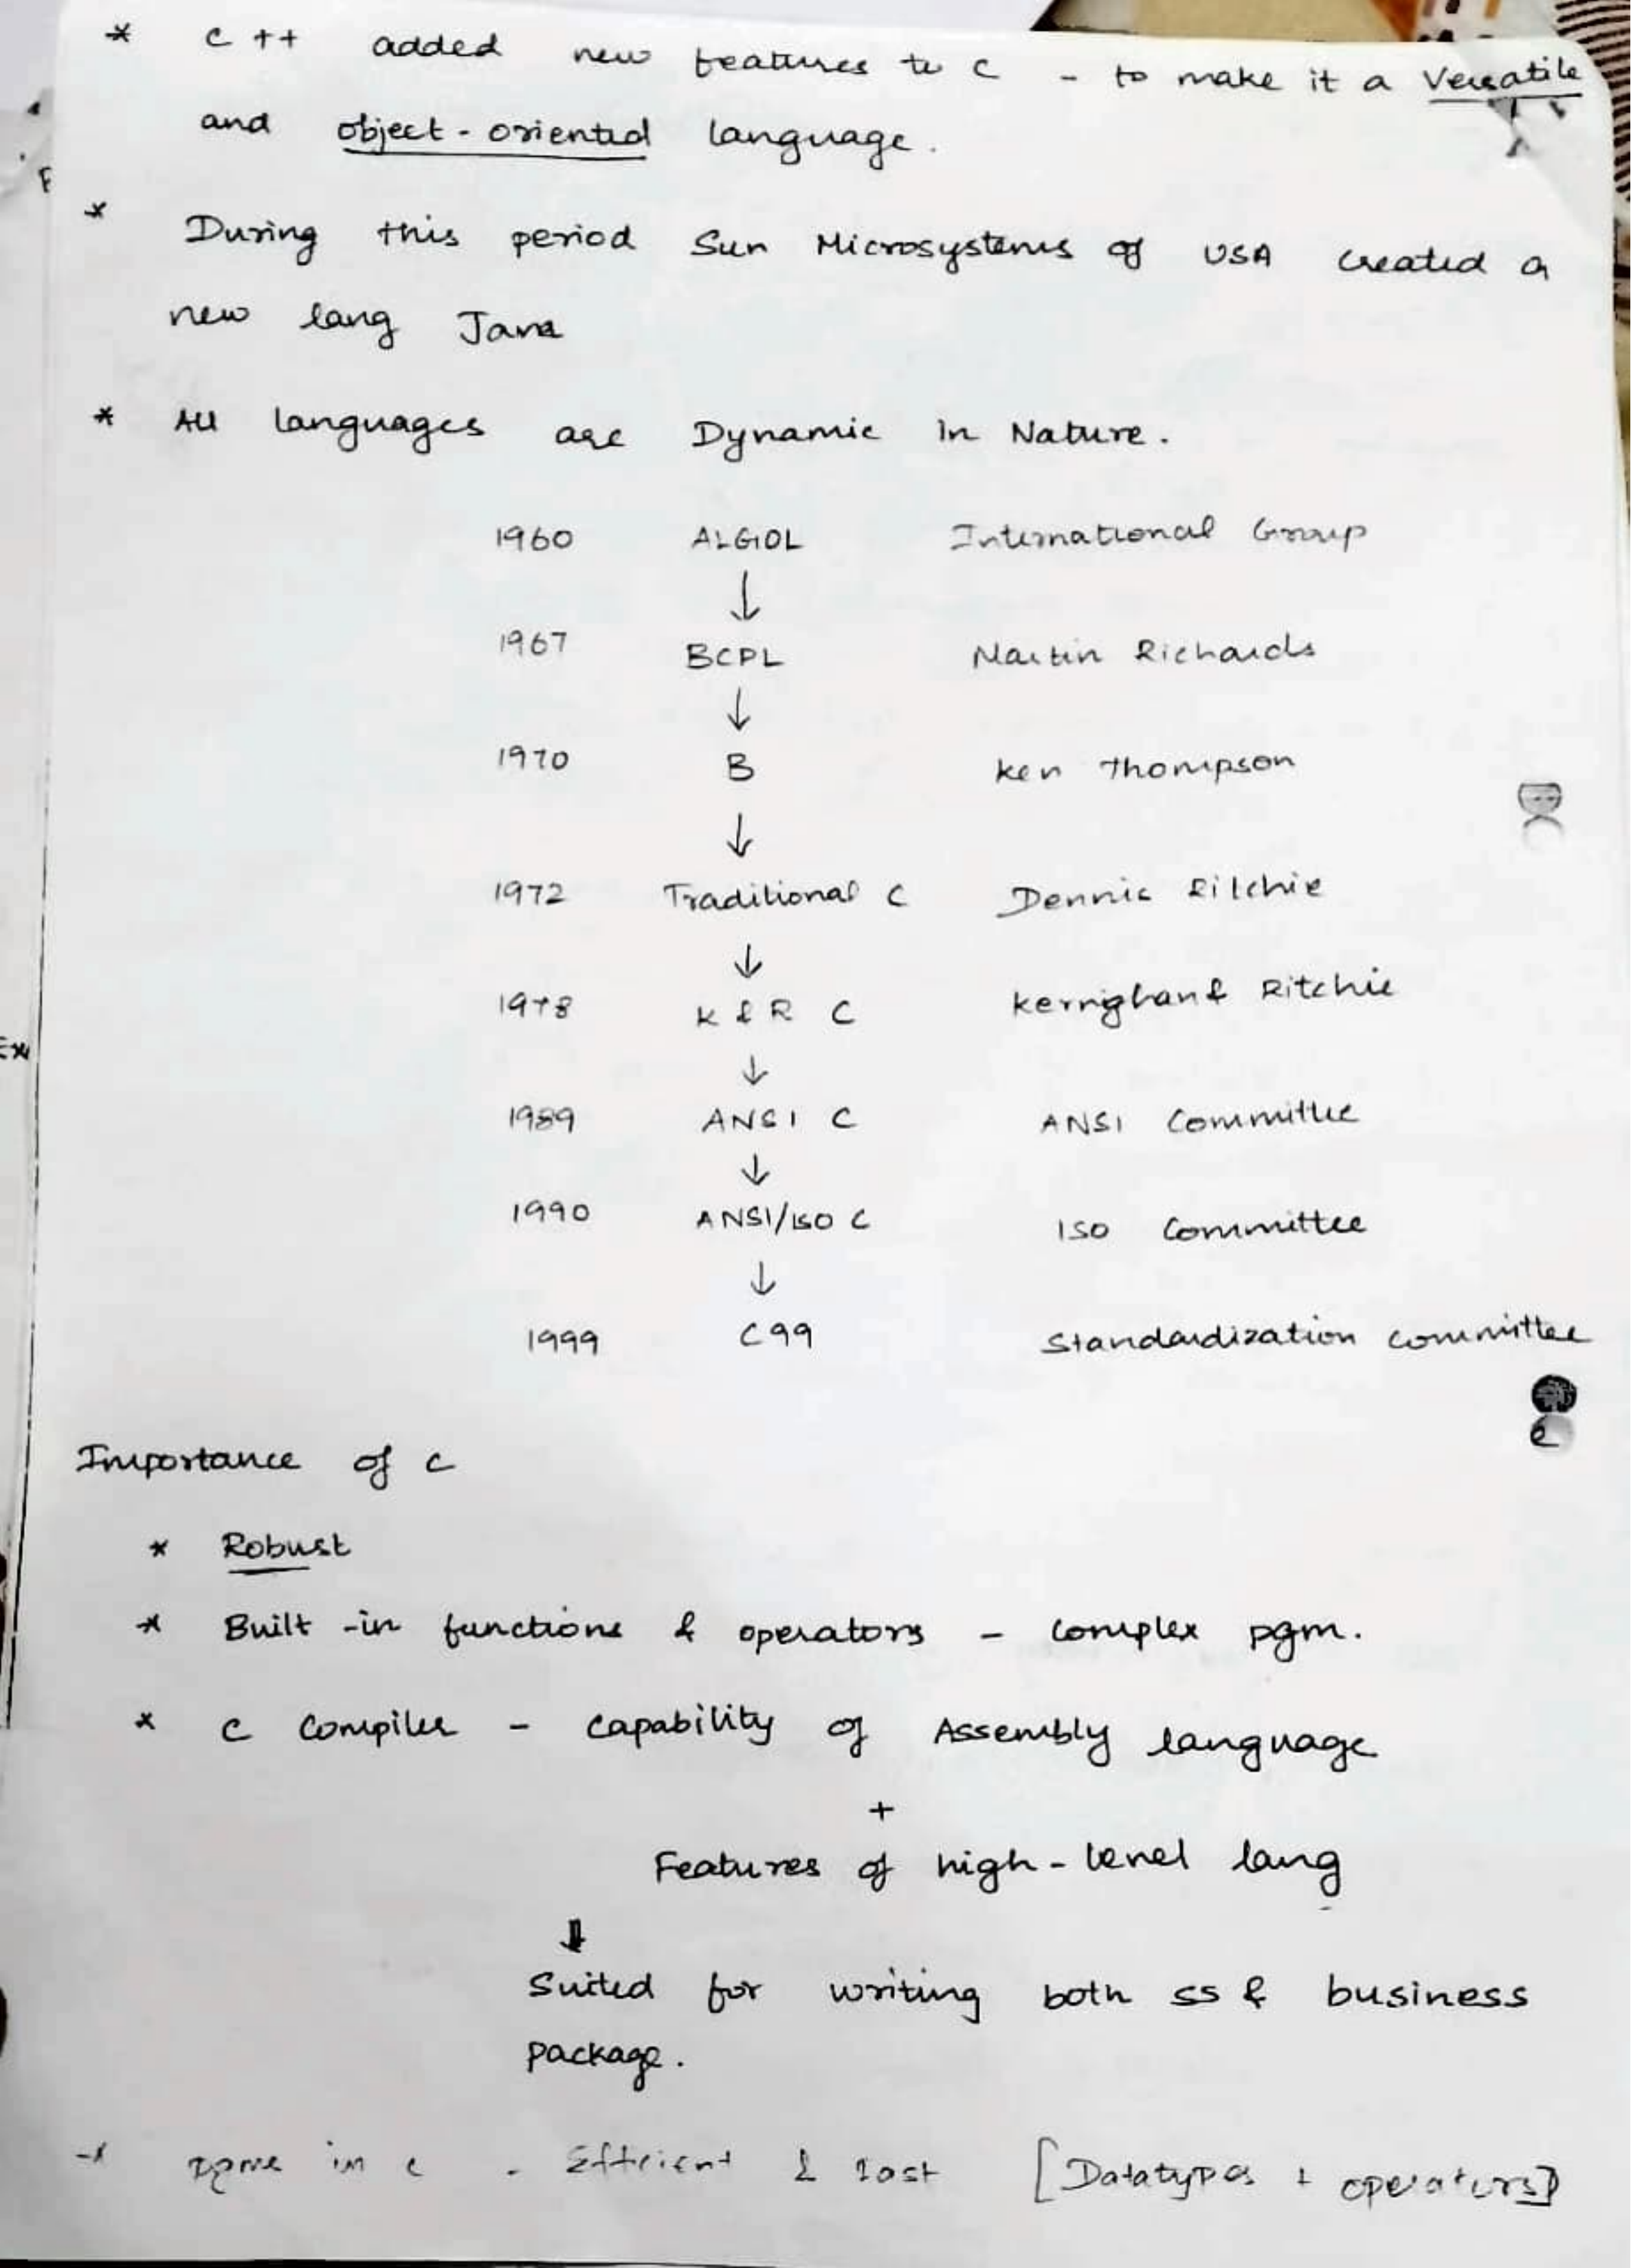 * C++ added new features to C - to make it a Versatile
and object-oriented language.
* During this period Sun Microsystems of USA created a
new lang Java
* All languages are Dynamic in Nature.
1960 ALGOL International Group
↓
1967 BCPL Martin Richards
↓
1970 B Ken Thompson
↓
1972 Traditional C Dennis Ritchie
↓
1978 K & R C Kernighan & Ritchie
↓
1989 ANSI C ANSI Committee
↓
1990 ANSI/ISO C ISO Committee
↓
1999 C99 Standardization committee
Importance of C
* Robust
* Built-in functions & operators - complex pgm.
* C Compiler - Capability of Assembly language
+
Features of high-level lang
↓
Suited for writing both SS & business
package.
* pgms in C - Efficient & fast [Datatypes + operators]